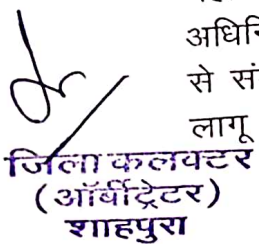 अधिनि
से सं
लागू
जिला कलक्टर
(ऑर्बीट्रेटर)
शाहपुरा